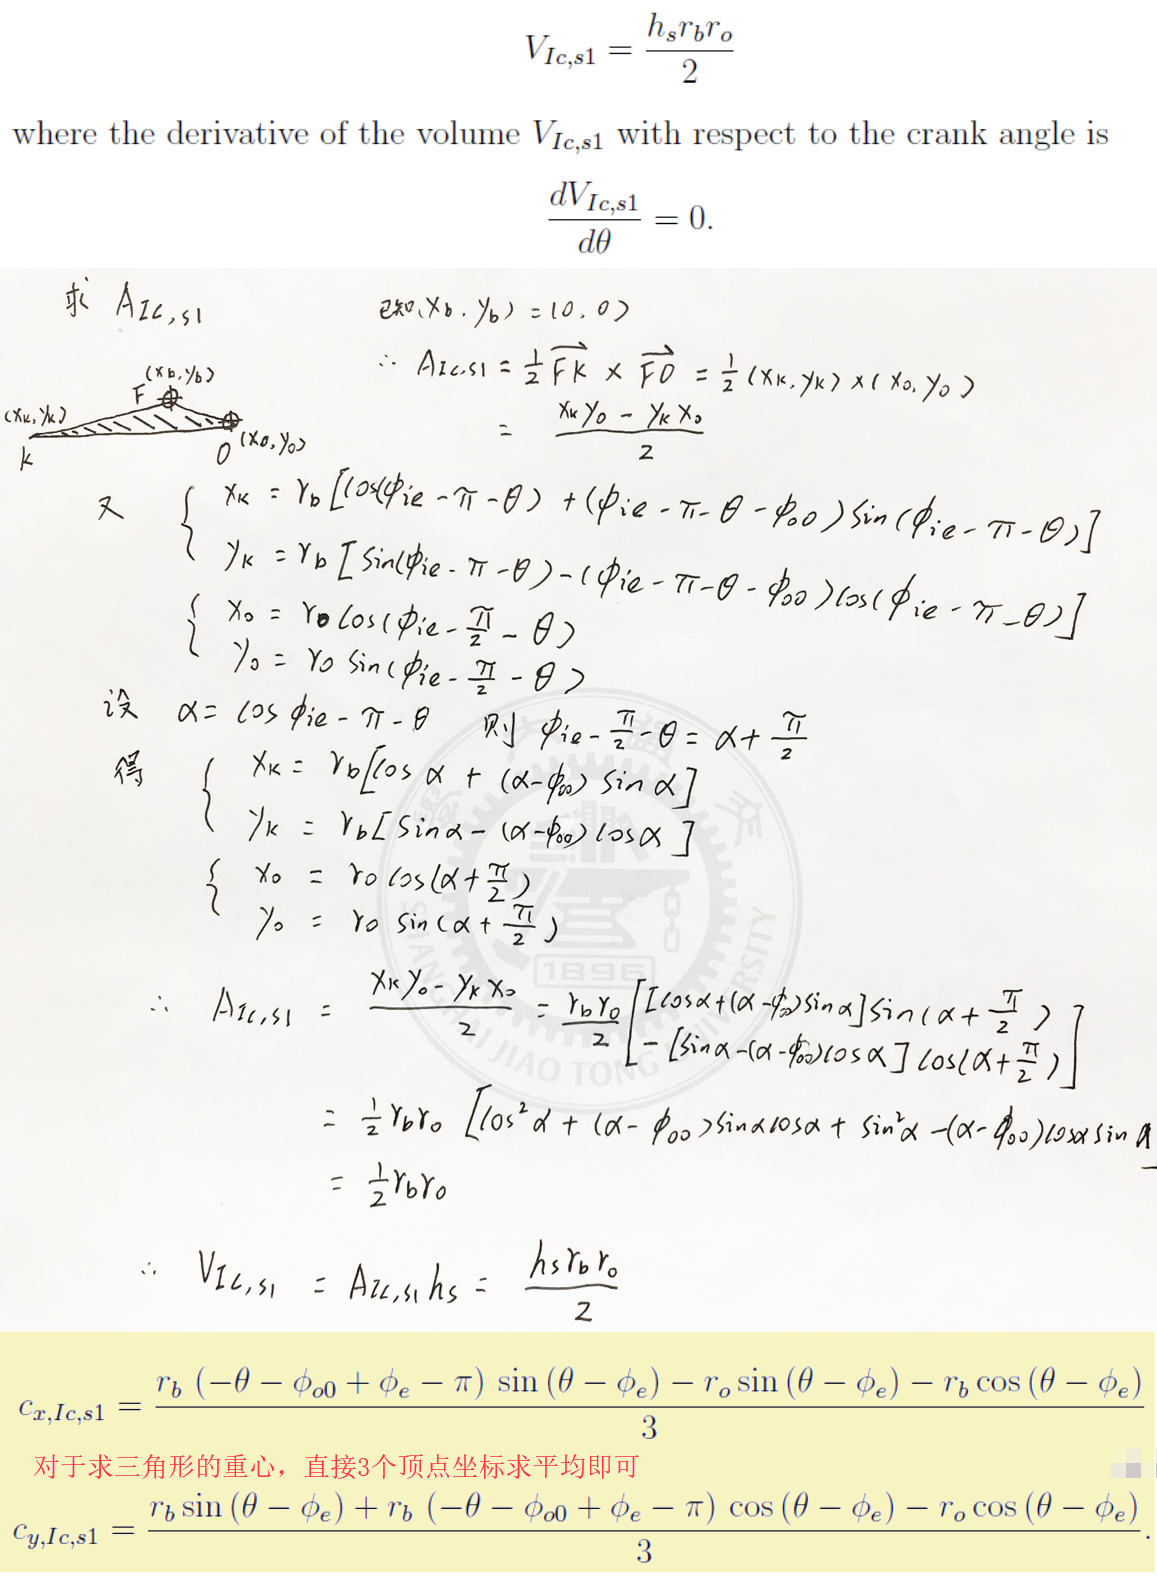 V_{Ic,s1} = \frac{h_s r_b r_o}{2}
where the derivative of the volume V_{Ic,s1} with respect to the crank angle is
\frac{dV_{Ic,s1}}{dθ} = 0.
求 A_{Ic,s1}
已知 (x_b, y_b) = (0, 0)
∴ A_{Ic,s1} = \frac{1}{2} \overrightarrow{FK} × \overrightarrow{FO} = \frac{1}{2} (x_K, y_K) × (x_o, y_o)
(x_b, y_b)
F
(x_K, y_K)
K
O (x_o, y_o)
= \frac{x_K y_o - y_K x_o}{2}
又 { x_K = r_b [cos(φ_{ie} - π - θ) + (φ_{ie} - π - θ - φ_{oo}) sin(φ_{ie} - π - θ)]
y_K = r_b [sin(φ_{ie} - π - θ) - (φ_{ie} - π - θ - φ_{oo}) cos(φ_{ie} - π - θ)]
{ x_o = r_o cos(φ_{ie} - \frac{π}{2} - θ)
y_o = r_o sin(φ_{ie} - \frac{π}{2} - θ)
设 α = cos φ_{ie} - π - θ 则 φ_{ie} - \frac{π}{2} - θ = α + \frac{π}{2}
得 { x_K = r_b [cos α + (α - φ_{oo}) sin α]
y_K = r_b [sin α - (α - φ_{oo}) cos α]
{ x_o = r_o cos(α + \frac{π}{2})
y_o = r_o sin(α + \frac{π}{2})
∴ A_{Ic,s1} = \frac{x_K y_o - y_K x_o}{2} = \frac{r_b r_o}{2} [ [cos α + (α - φ_{oo}) sin α] sin(α + \frac{π}{2})
- [sin α - (α - φ_{oo}) cos α] cos(α + \frac{π}{2}) ]
= \frac{1}{2} r_b r_o [cos²α + (α - φ_{oo}) sin α cos α + sin²α - (α - φ_{oo}) cos α sin α
= \frac{1}{2} r_b r_o
∴ V_{Ic,s1} = A_{Ic,s1} h_s = \frac{h_s r_b r_o}{2}
1896
SHANGHAI JIAO TONG UNIVERSITY
c_{x,Ic,s1} = \frac{r_b (-θ - φ_{o0} + φ_e - π) sin (θ - φ_e) - r_o sin (θ - φ_e) - r_b cos (θ - φ_e)}{3}
对于求三角形的重心，直接3个顶点坐标求平均即可
c_{y,Ic,s1} = \frac{r_b sin (θ - φ_e) + r_b (-θ - φ_{o0} + φ_e - π) cos (θ - φ_e) - r_o cos (θ - φ_e)}{3}.